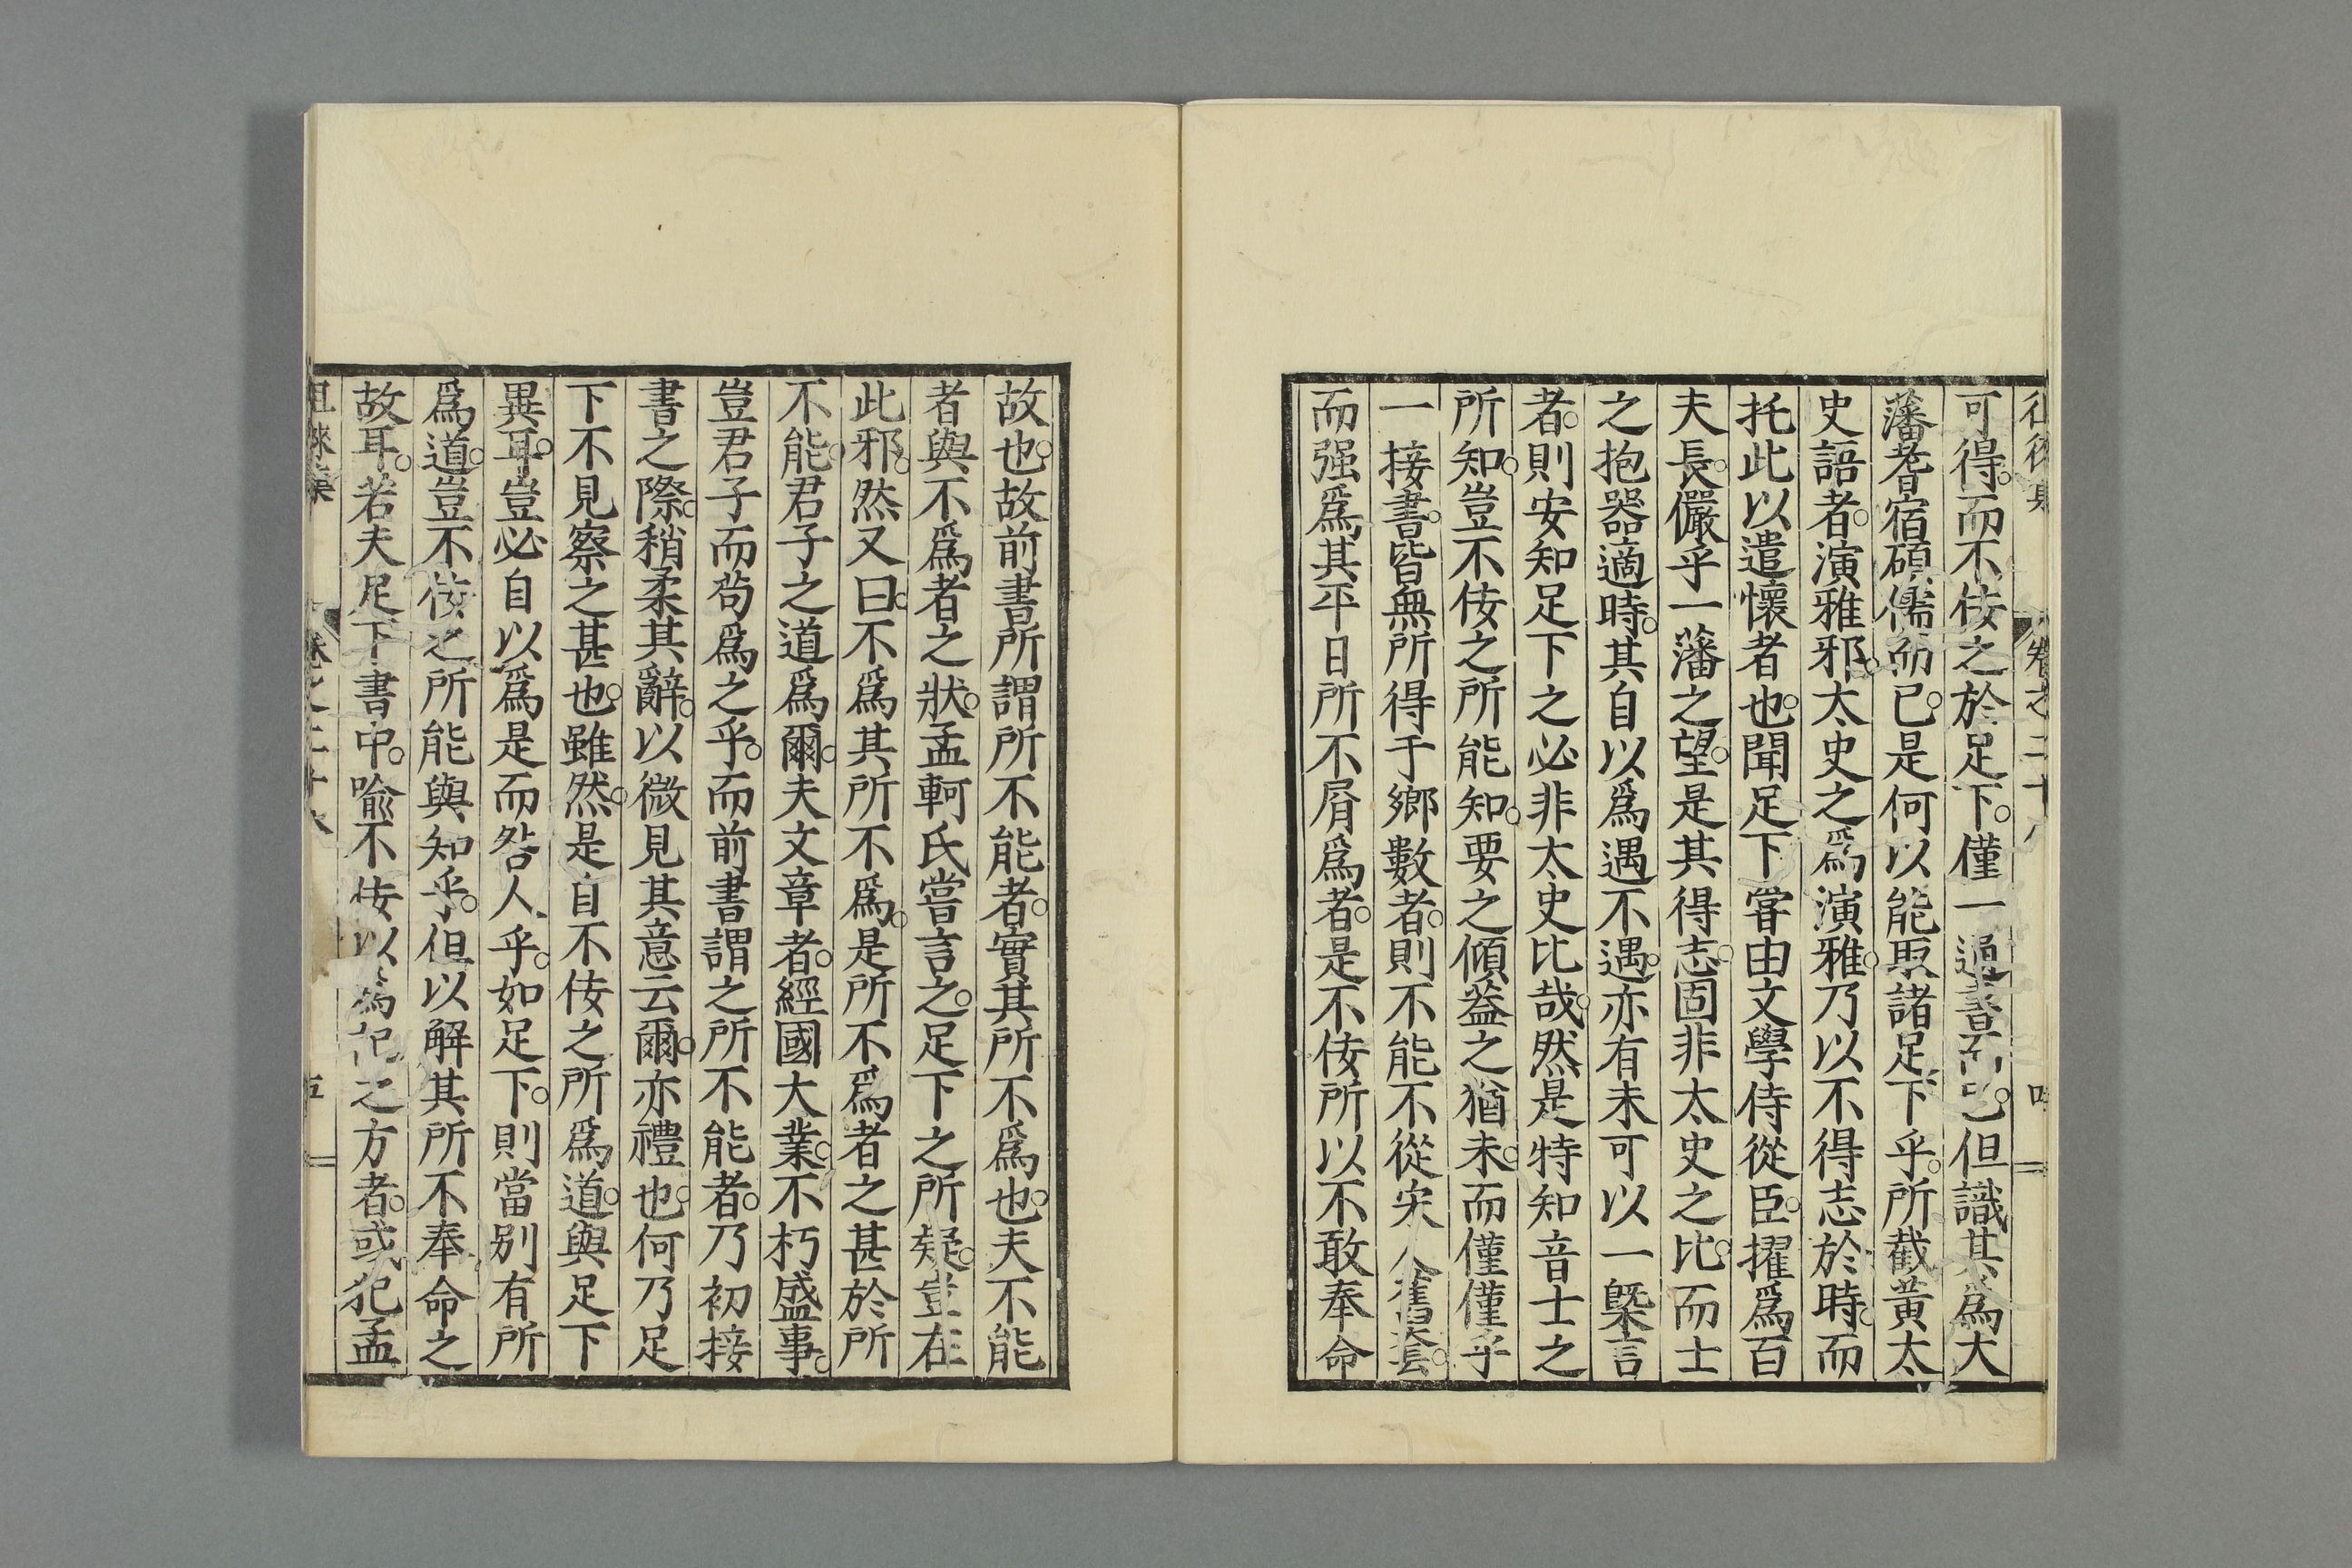 可得。而不佞之於足下。僅一過書而已。但識其爲大
藩耆宿碩儒而已。是何以能取諸足下乎。所載黃太
史語者。演雅邪。太史之爲演雅。乃以不得志於時。而
托此以遣懷者也。聞足下嘗由文學侍從臣。擢爲百
夫長。儼乎一藩之望。是其得志。固非太史之比。而士
之抱器適時。其自以爲遇不遇。亦有未可以一槩言
者。則安知足下之必非太史比哉。然是特知音士之
所知。豈不佞之所能知。要之傾蓋之猶未。而僅僅乎
一接書。皆無所得于鄉數者。則不能不從宋人舊套。
而强爲其平日所不屑爲者。是不佞所以不敢奉命
故也。故前書所謂所不能者。實其所不爲也。夫不能
者與不爲者之狀。孟軻氏嘗言之。足下之所疑。豈在
此邪。然又曰。不爲其所不爲。是所不爲者之甚於所
不能。君子之道爲爾。夫文章者。經國大業。不朽盛事。
豈君子而苟爲之乎。而前書謂之所不能者。乃初接
書之際。稍柔其辭。以微見其意云爾。亦禮也。何乃足
下不見察之甚也。雖然。是自不佞之所爲道。與足下
異耳。豈必自以爲是而咎人乎。如足下。則當別有所
爲道。豈不佞之所能與知乎。但以解其所不奉命之
故耳。若夫足下書中。喩不佞以爲記之方者。或犯孟
卷之二十八